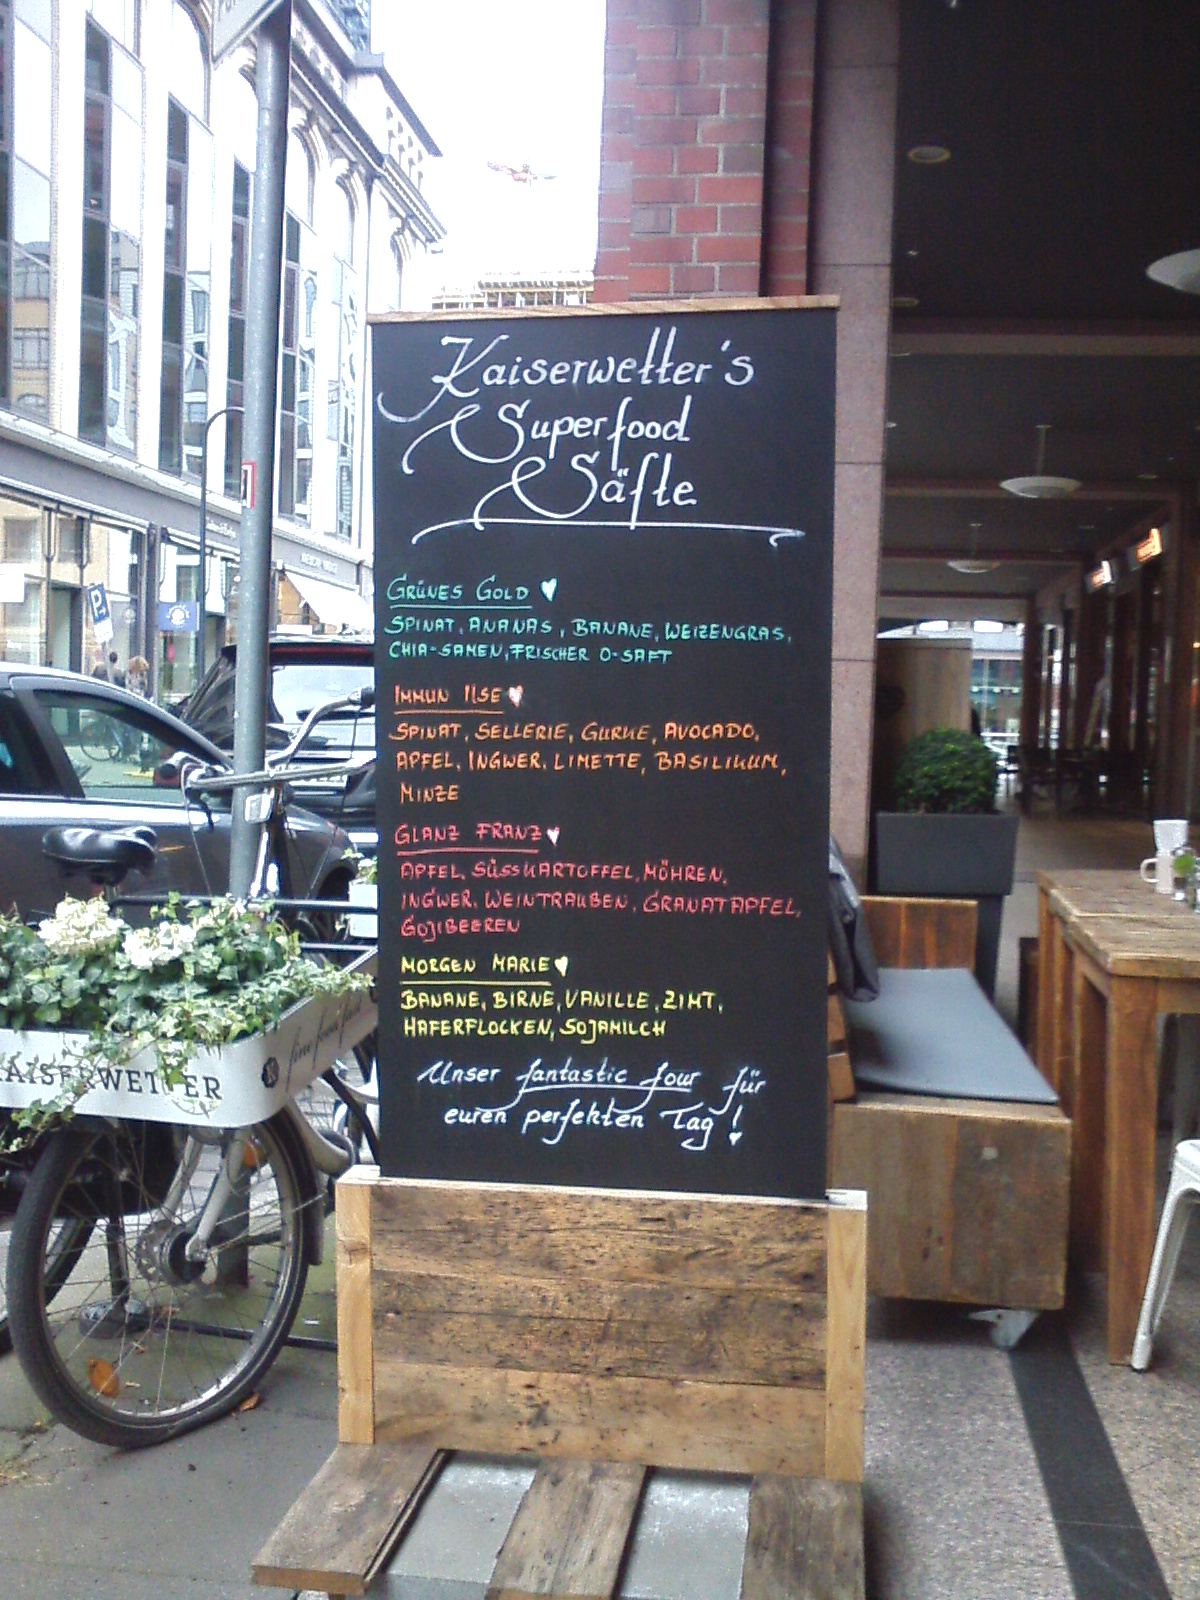 Kaiserwetter's
Superfood
Säfte
GRÜNES GOLD
SPINAT, ANANAS, BANANE, WEIZENGRAS,
CHIA-SAMEN, FRISCHER O-SAFT
IMMUN ILSE
SPINAT, SELLERIE, GURKE, AVOCADO,
APFEL, INGWER, LIMETTE, BASILIKUM,
MINZE
GLANZ FRANZ
APFEL, SÜSSKARTOFFEL, MÖHREN,
INGWER, WEINTRAUBEN, GRANATAPFEL,
GOJIBEEREN
MORGEN MARIE
BANANE, BIRNE, VANILLE, ZIMT,
HAFERFLOCKEN, SOJAMILCH
Unser fantastic four für
euren perfekten Tag!
KAISERWETTER
fine food
P